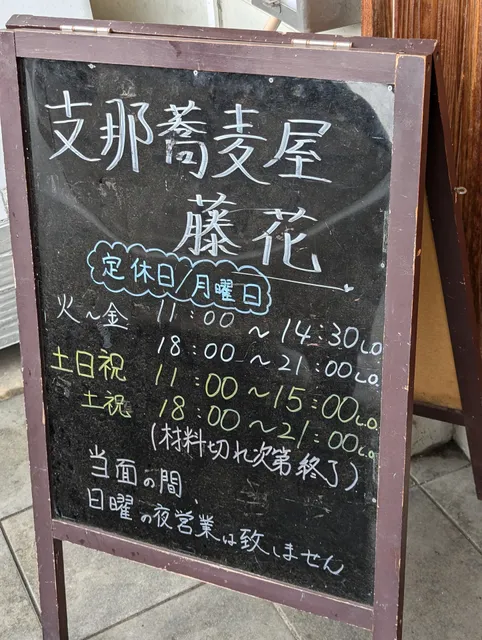 支那蕎麦屋
藤花
定休日/月曜日
火～金 11:00 ～ 14:30L.O.
18:00 ～ 21:00L.O.
土日祝 11:00 ～ 15:00L.O.
土祝 18:00 ～ 21:00L.O.
(材料切れ次第終了)
当面の間、
日曜の夜営業は致しません